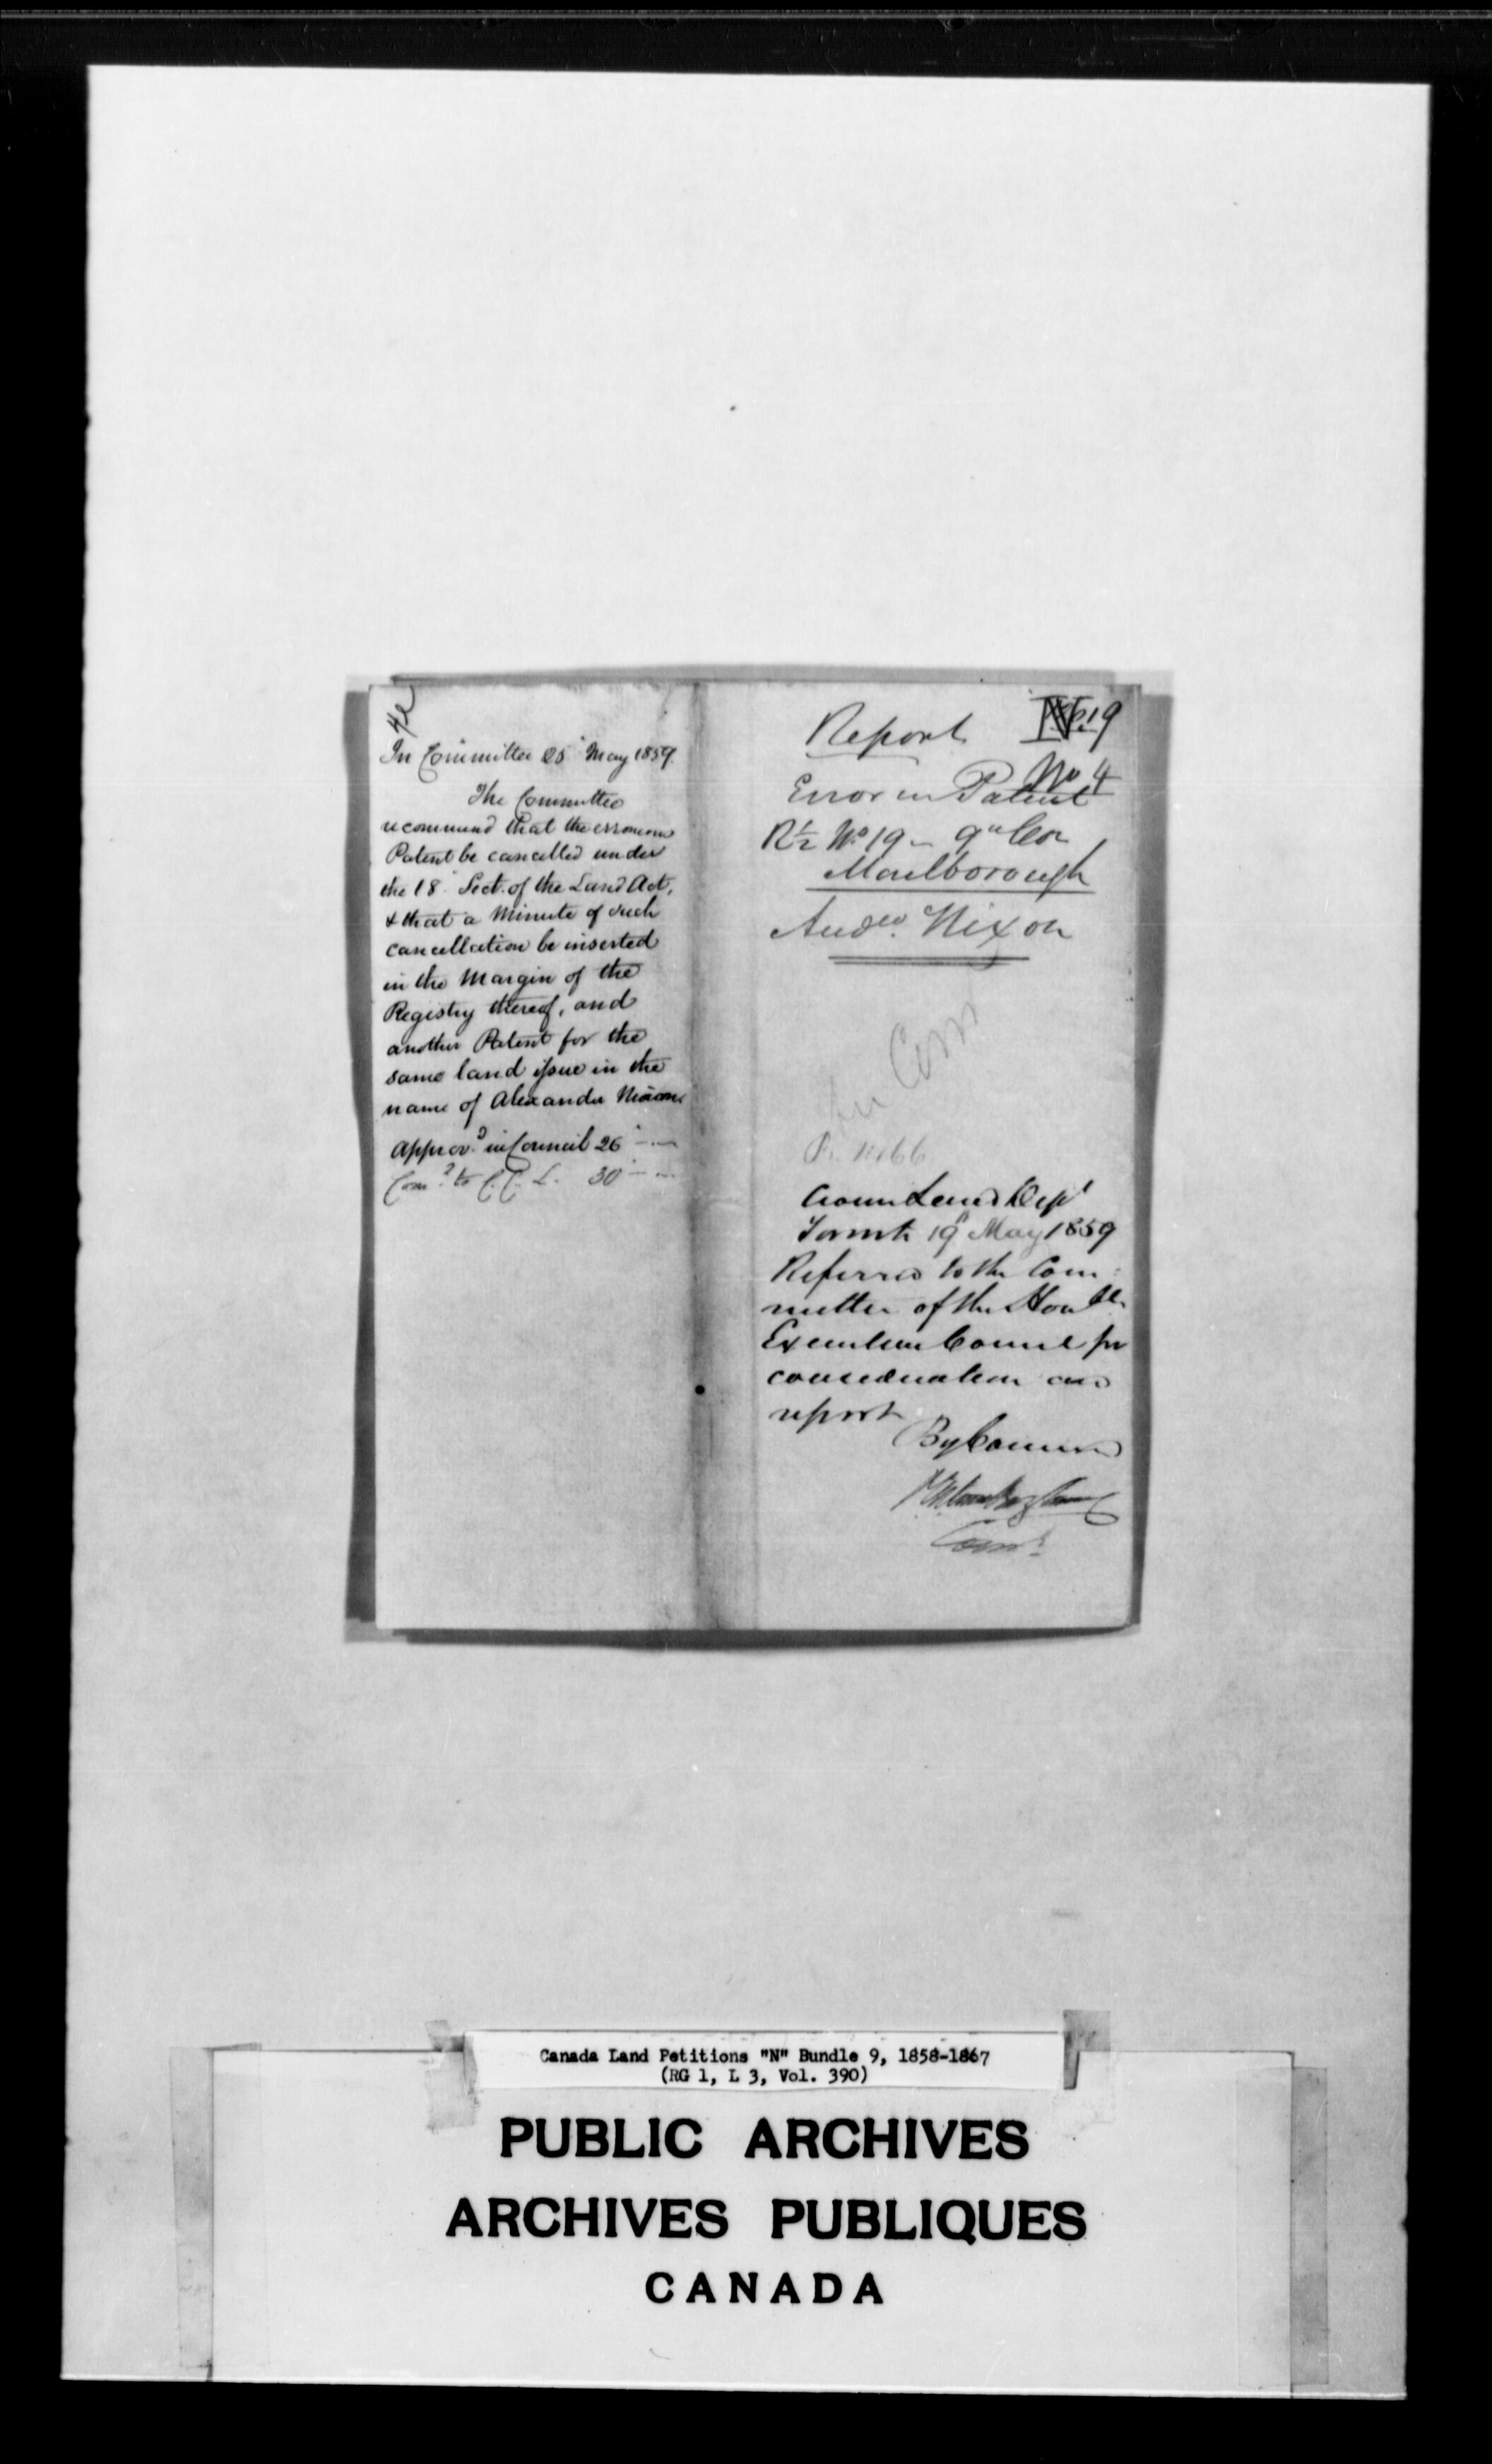 4e
In Committee 25" May 1859.
The Committee
recommend that the erroneous
Patent be cancelled under
the 18" Sect. of the Land Act,
& that a Minute of such
cancellation be inserted
in the Margin of the
Registry thereof, and
another Patent for the
same land issue in the
name of Alexander
Approvd in Council 26" — —
Comd to C. C. L. 30" — —
Report
N 19
No 4
Error in Patent
R½ No 19 — 9th Con
Marlborough
Andw. Nixon
In Com
Crown Land Dept
Toronto 19th May 1859
Referred to the Com-
mittee of the Honble
Executive Council for
consideration and
report
By Command
Comr
Canada Land Petitions "N" Bundle 9, 1858-1867
(RG 1, L 3, Vol. 390)
PUBLIC ARCHIVES
ARCHIVES PUBLIQUES
CANADA